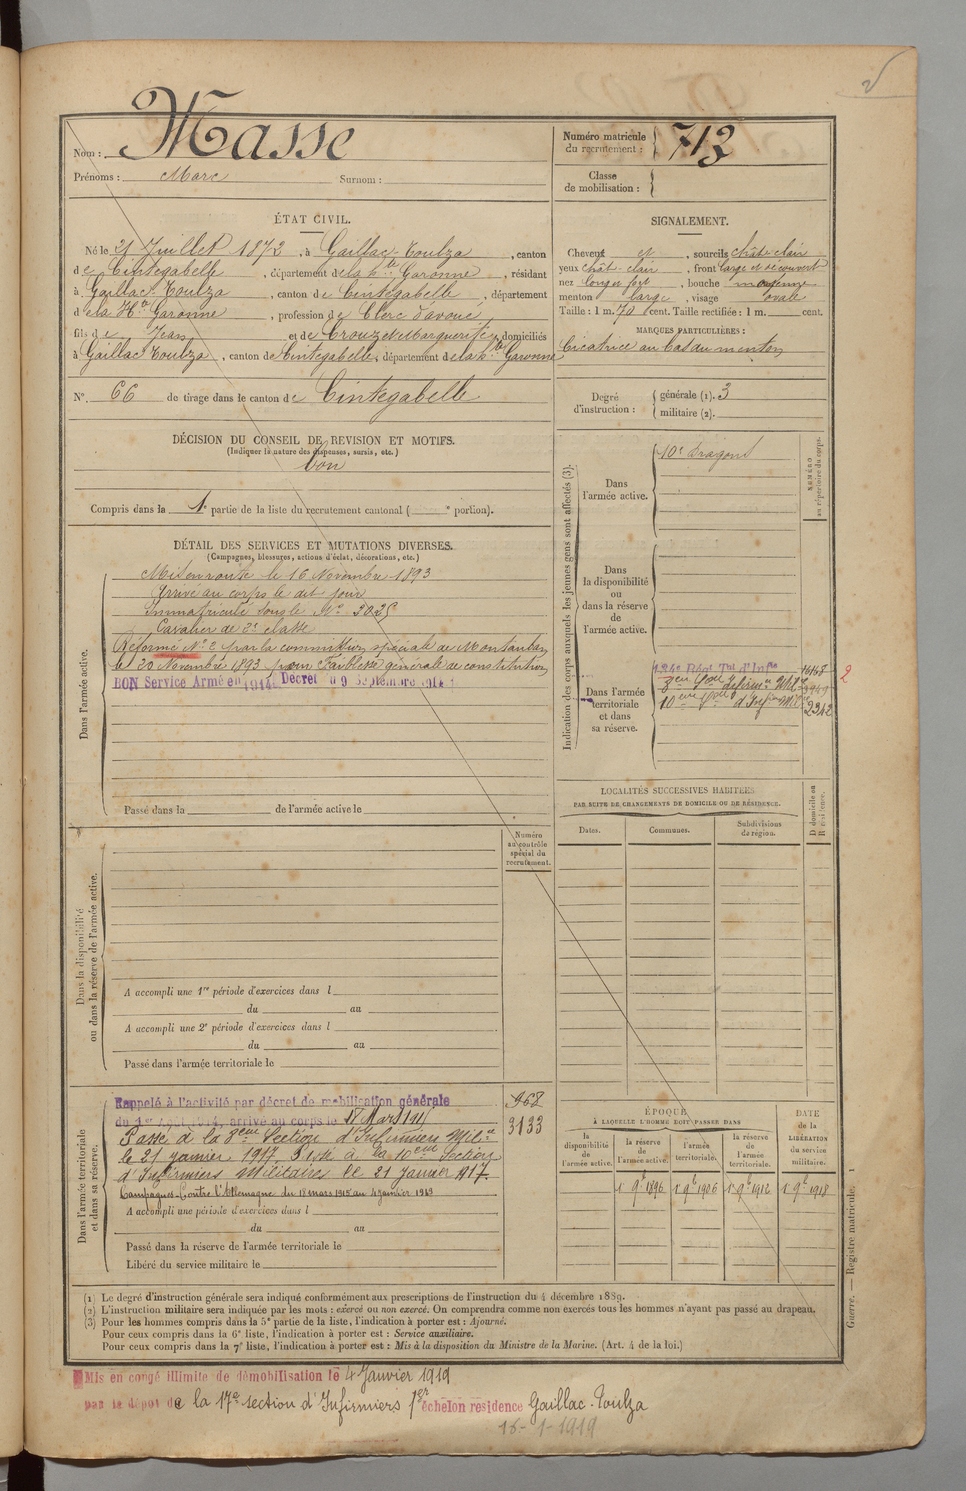 2
Nom : Masse
Prénoms : Marc Surnom :
Numéro matricule du recrutement : 713
Classe de mobilisation :
ÉTAT CIVIL.
Né le 21 Juillet 1873, à Gaillac-Toulza, canton
de Cintegabelle, département de la Hte Garonne, résidant
à Gaillac-Toulza, canton de Cintegabelle, département
de la Hte Garonne, profession de Clerc d'avoué
fils de Jean et de Crouzet Marguerite domiciliés
à Gaillac Toulza, canton de Cintegabelle, département de la Hte Garonne
No. 66 de tirage dans le canton de Cintegabelle
SIGNALEMENT.
Cheveux et, sourcils chât. clair
yeux chât. clair, front large et découvert
nez longe fort, bouche moyenne
menton large, visage ovale
Taille : 1 m. 70 cent. Taille rectifiée : 1 m. cent.
MARQUES PARTICULIÈRES :
Cicatrice au bas du menton
Degré d'instruction : générale (1). 3
militaire (2).
DÉCISION DU CONSEIL DE REVISION ET MOTIFS.
(Indiquer la nature des dispenses, sursis, etc.)
bon
Compris dans la 1e partie de la liste du recrutement cantonal ( e portion).
DÉTAIL DES SERVICES ET MUTATIONS DIVERSES.
(Campagnes, blessures, actions d'éclat, décorations, etc.)
Dans l'armée active.
Mis en route le 16 Novembre 1893
Arrivé au corps le dit jour
Immatriculé sous le No 3025
Cavalier de 2e classe
Réformé No 2 par la commission spéciale de Montauban
le 20 Novembre 1893 pour Faiblesse générale de constitution
BON Service Armé en 1914. Décret du 9 Septembre 1914
Passé dans la de l'armée active le
Indication des corps auxquels les jeunes gens sont affectés (3).
NUMÉRO au répertoire du corps.
Dans l'armée active.
10e Dragons
Dans la disponibilité ou dans la réserve de l'armée active.
Dans l'armée territoriale et dans sa réserve.
134e Régt Tal d'Infie 16168
8eme Son d'Infirm. Mil.
10eme Son d'Infirm Mil. 2342
2
LOCALITÉS SUCCESSIVES HABITÉES
PAR SUITE DE CHANGEMENTS DE DOMICILE OU DE RÉSIDENCE.
Dates. Communes. Subdivisions de région. D domicile ou R résidence.
Numéro au contrôle spécial du recrutement.
Dans la disponibilité ou dans la réserve de l'armée active.
A accompli une 1re période d'exercices dans l
du au
A accompli une 2e période d'exercices dans l
du au
Passé dans l'armée territoriale le
Dans l'armée territoriale et dans sa réserve.
Rappelé à l'activité par décret de mobilisation générale 968
du 1er Août 1914, arrivé au corps le 18 Mars 1915 3133
Passé à la 8eme Section d'Infirmiers Mil.
le 21 janvier 1917. Passé à la 10eme Section
d'Infirmiers Militaires le 21 janvier 1917.
Campagnes-Contre l'Allemagne du 18 mars 1915 au 4 janvier 1919
A accompli une période d'exercices dans l
du au
Passé dans la réserve de l'armée territoriale le
Libéré du service militaire le
ÉPOQUE
À LAQUELLE L'HOMME DOIT PASSER DANS
la disponibilité de l'armée active. la réserve de l'armée active. l'armée territoriale. la réserve de l'armée territoriale.
DATE de la LIBÉRATION du service militaire.
1er 9bre 1896 1er 9bre 1906 1er 9bre 1912 1er 9bre 1918
Guerre. — Registre matricule. 1
(1) Le degré d'instruction générale sera indiqué conformément aux prescriptions de l'instruction du 4 décembre 1889.
(2) L'instruction militaire sera indiquée par les mots : exercé ou non exercé. On comprendra comme non exercés tous les hommes n'ayant pas passé au drapeau.
(3) Pour les hommes compris dans la 5e partie de la liste, l'indication à porter est : Ajourné.
Pour ceux compris dans la 6e liste, l'indication à porter est : Service auxiliaire.
Pour ceux compris dans la 7e liste, l'indication à porter est : Mis à la disposition du Ministre de la Marine. (Art. 4 de la loi.)
Mis en congé illimité de démobilisation le 4 Janvier 1919
par le dépôt de la 17e section d'Infirmiers 1er échelon résidence Gaillac-Toulza
16-1-1919